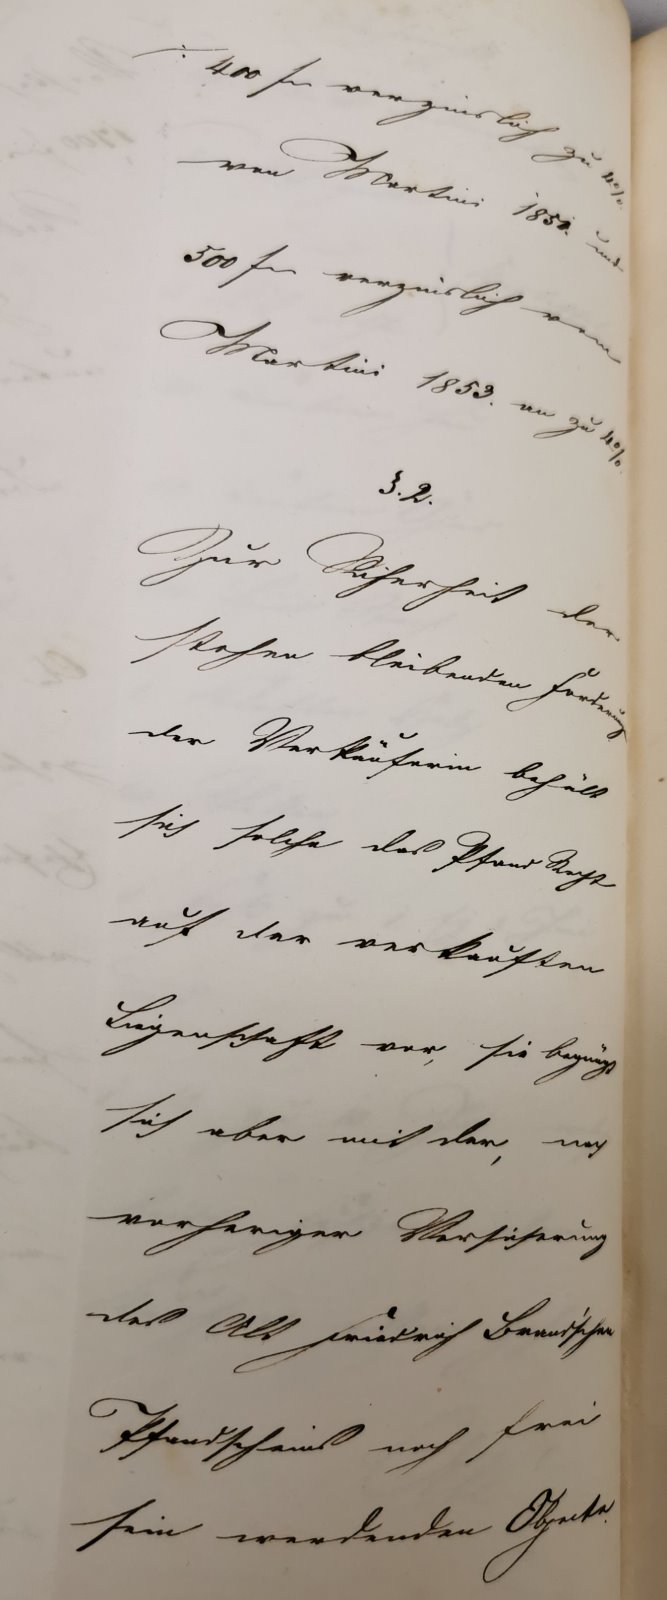 400 f verzinslich zu 4%.
von Martini 1851. und
500 f verzinslich vom
Martini 1853. an zu 4%.
§. 2.
Zur Sicherheit der
stehen bleibenden Forderung
der Verkäuferin behält
sich solche das Pfand Recht
auf der verkauften
Liegenschaft vor, sie begnügt
sich aber mit der, nach
vorheriger Versicherung
des Alt Friedrich Brand'schen
Pfandscheins noch frei
sein werdenden Objecte.